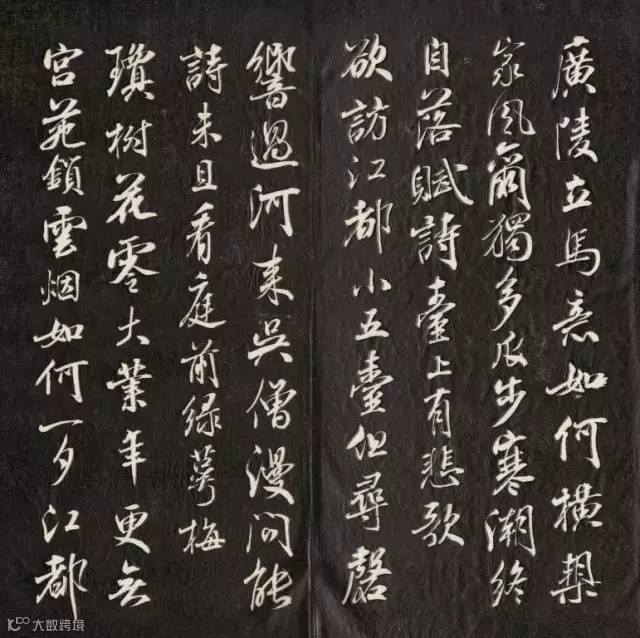 廣陵立馬意如何橫槊
家風爾獨多瓜步寒潮終
自落賦詩臺上有悲歌
欲訪江都小五臺但尋磬
響過河来吳僧漫問能
詩未且看庭前緑萼梅
瓊樹花零大業年更無
宮苑鎖雲烟如何一夕江都
大数跨境